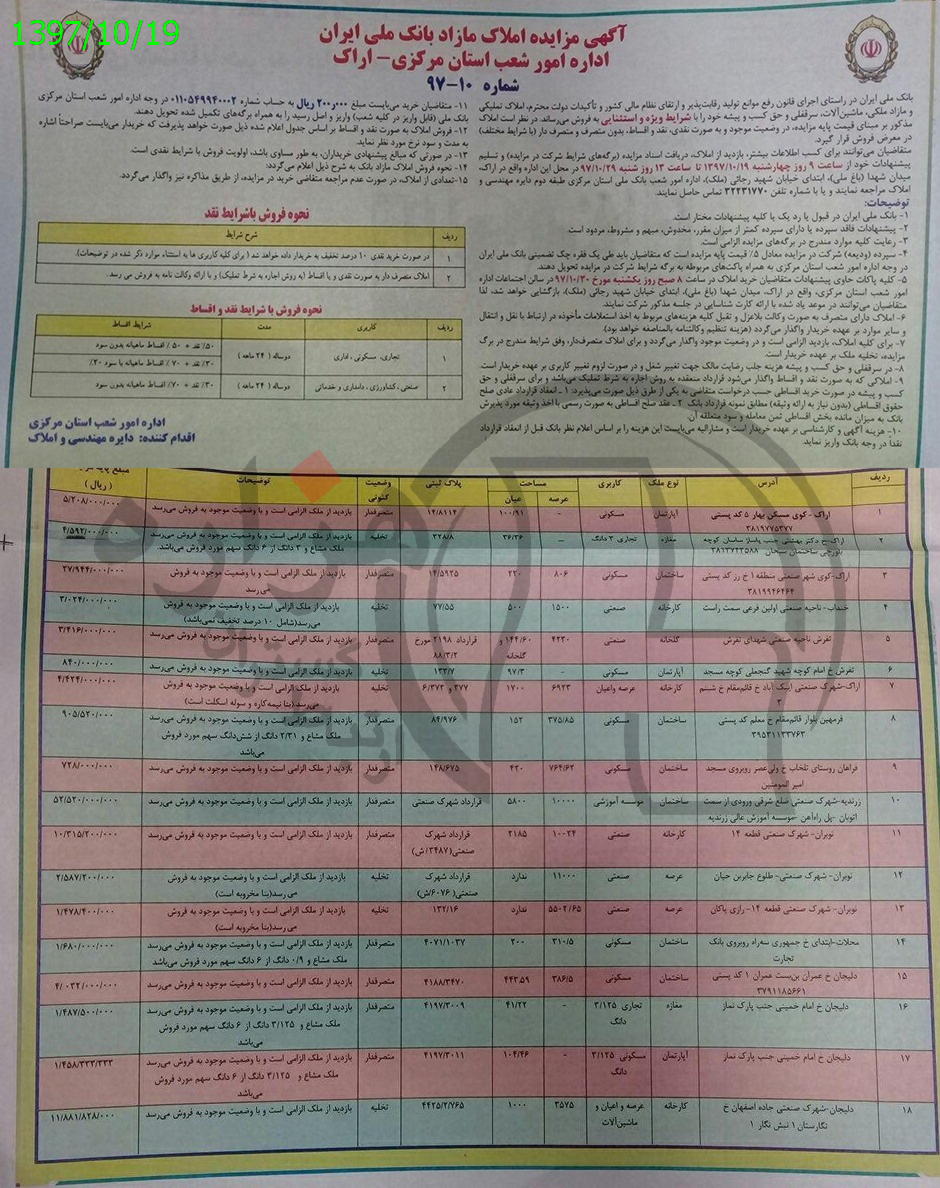 1397/10/19
آگهی مزایده املاک مازاد بانک ملی ایران
اداره امور شعب استان مرکزی- اراک
شماره ۱۰-۹۷
بانک ملی ایران در راستای اجرای قانون رفع موانع تولید رقابت‌پذیر و ارتقای نظام مالی کشور و تأکیدات دولت محترم، املاک تملیکی
و مازاد ملکی، ماشین‌آلات، سرقفلی و حق کسب و پیشه خود را با شرایط ویژه و استثنایی به فروش می‌رساند. در نظر است املاک
مذکور بر مبنای قیمت پایه مزایده، در وضعیت موجود و به صورت نقدی، نقد و اقساط، بدون متصرف و متصرف دار (با شرایط مختلف)
در معرض فروش قرار گیرد.
متقاضیان می‌توانند برای کسب اطلاعات بیشتر، بازدید از املاک، دریافت اسناد مزایده (برگه‌های شرایط شرکت در مزایده) و تسلیم
پیشنهادات خود از ساعت ۹ روز چهارشنبه ۱۳۹۷/۱۰/۱۹ تا ساعت ۱۳ روز شنبه ۹۷/۱۰/۲۹ در محل این اداره واقع در اراک،
میدان شهدا (باغ ملی)، ابتدای خیابان شهید رجائی (ملک)، اداره امور شعب بانک ملی استان مرکزی طبقه دوم دایره مهندسی و
املاک مراجعه نمایند و یا با شماره تلفن ۳۲۲۳۱۷۷۰ تماس حاصل نمایند.
توضیحات:
۱- بانک ملی ایران در قبول یا رد یک یا کلیه پیشنهادات مختار است.
۲- پیشنهادات فاقد سپرده یا دارای سپرده کمتر از میزان مقرر، مخدوش، مبهم و مشروط، مردود است.
۳- رعایت کلیه موارد مندرج در برگه‌های مزایده الزامی است.
۴- سپرده (ودیعه) شرکت در مزایده معادل ۵٪ قیمت پایه مزایده است که متقاضیان باید طی یک فقره چک تضمینی بانک ملی ایران
در وجه اداره امور شعب استان مرکزی به همراه پاکت‌های مربوطه به برگه شرایط شرکت در مزایده تحویل دهند.
۵- کلیه پاکات حاوی پیشنهادات متقاضیان خرید املاک در ساعت ۸ صبح روز یکشنبه مورخ ۹۷/۱۰/۳۰ در سالن اجتماعات اداره
امور شعب استان مرکزی، واقع در اراک، میدان شهدا (باغ ملی)، ابتدای خیابان شهید رجائی (ملک)، بازگشایی خواهد شد، لذا
متقاضیان می‌توانند در موعد یاد شده با ارائه کارت شناسایی در جلسه مذکور شرکت نمایند.
۶- املاک دارای متصرف به صورت وکالت بلاعزل و تقبل کلیه هزینه‌های مربوط به اخذ استعلامات مأخوذه در ارتباط با نقل و انتقال
و سایر موارد بر عهده خریدار واگذار می‌گردد (هزینه تنظیم وکالتنامه بالمناصفه خواهد بود).
۷- برای کلیه املاک، بازدید الزامی است و در وضعیت موجود واگذار می‌گردد و برای املاک متصرف‌دار، وفق شرایط مندرج در برگ
مزایده، تخلیه ملک بر عهده خریدار است.
۸- در سرقفلی و حق کسب و پیشه هزینه جلب رضایت مالک جهت تغییر شغل و در صورت لزوم تغییر کاربری بر عهده خریدار است.
۹- املاکی که به صورت نقد و اقساط واگذار می‌شود قرارداد منعقده به روش اجاره به شرط تملیک می‌باشد و برای سرقفلی و حق
کسب و پیشه در صورت خرید اقساطی حسب درخواست متقاضی به یکی از طرق ذیل صورت می‌پذیرد: ۱ـ انعقاد قرارداد عادی صلح
حقوق اقساطی (بدون نیاز به ارائه وثیقه) مطابق نمونه قرارداد بانک ۲ـ عقد صلح اقساطی به صورت رسمی با اخذ وثیقه مورد پذیرش
بانک به میزان مانده بخش اقساطی ثمن معامله و سود متعلقه آن.
۱۰- هزینه آگهی و کارشناسی بر عهده خریدار است و مشارالیه می‌بایست این هزینه را بر اساس اعلام نظر بانک قبل از انعقاد قرارداد
نقداً در وجه بانک واریز نماید.
۱۱- متقاضیان خرید می‌بایست مبلغ ۲۰۰٫۰۰۰ ریال به حساب شماره ۰۱۱۰۵۴۹۹۴۰۰۰۲ در وجه اداره امور شعب استان مرکزی
بانک ملی (قابل واریز در کلیه شعب) واریز و اصل رسید را به همراه برگه‌های تکمیل شده تحویل دهند.
۱۲- فروش املاک به صورت نقد و اقساط بر اساس جدول اعلام شده ذیل صورت خواهد پذیرفت که خریدار می‌بایست صراحتاً اشاره
به مدت و سود نرخ مورد نظر نماید.
۱۳- در صورتی که مبالغ پیشنهادی خریداران، به طور مساوی باشد، اولویت فروش با شرایط نقدی است.
۱۴- نحوه فروش املاک مازاد بانک به شرح ذیل اعلام می‌گردد:
۱۵-تعدادی از املاک، در صورت عدم مراجعه متقاضی خرید در مزایده، از طریق مذاکره نیز واگذار می‌گردد.
نحوه فروش باشرایط نقد
ردیف شرح شرایط
۱ در صورت خرید نقدی ۱۰ درصد تخفیف به خریدار داده خواهد شد (برای کلیه کاربری ها به استثناء موارد ذکر شده در توضیحات).
۲ املاک متصرف دار به صورت نقدی و یا اقساط (به روش اجاره به شرط تملیک) و با ارائه وکالت نامه به فروش می رسد.
نحوه فروش با شرایط نقد و اقساط
ردیف کاربری مدت شرایط اقساط
۱ تجاری، مسکونی، اداری دوساله (۲۴ ماهه) ۵۰٪ نقد + ۵۰٪ اقساط ماهیانه بدون سود
۳۰٪ نقد + ۷۰٪ اقساط ماهیانه با سود ۲۰٪
۲ صنعتی، کشاورزی، دامداری و خدماتی دوساله (۲۴ ماهه) ۳۰٪ نقد + ۷۰٪ اقساط ماهیانه بدون سود
اداره امور شعب استان مرکزی
اقدام کننده: دایره مهندسی و املاک
ردیف آدرس نوع ملک کاربری مساحت عرصه اعیان پلاک ثبتی وضعیت کنونی توضیحات (ریال)
۱ اراک - کوی مسکن بهار ۵ کد پستی ۳۸۱۹۷۷۵۳۷۷ آپارتمان مسکونی - ۱۰۰/۹۱ ۱۴/۸۱۱۴ متصرفدار بازدید از ملک الزامی است و با وضعیت موجود به فروش می‌رسد ۵/۲۰۸/۰۰۰/۰۰۰
۲ اراک-خ دکتر بهشتی جنب پاساژ ساسان کوچه بلورچی ساختمان سبحان ۳۸۱۳۷۲۲۵۸۸ مغازه تجاری ۳ دانگ - ۳۶/۳۶ ۳۲۸/۸ تخلیه بازدید از ملک الزامی است و با وضعیت موجود به فروش می‌رسد ملک مشاع و ۳ دانگ از ۶ دانگ سهم مورد فروش می‌باشد ۴/۵۹۲/۰۰۰/۰۰۰
۳ اراک-کوی شهر صنعتی منطقه ۱ خ رز کد پستی ۳۸۱۹۹۴۶۴۶۴ ساختمان مسکونی ۸۰۶ ۲۲۰ ۱۴/۵۹۲۵ متصرفدار بازدید از ملک الزامی است و با وضعیت موجود به فروش می رسد ۲۷/۹۴۴/۰۰۰/۰۰۰
۴ خنداب- ناحیه صنعتی اولین فرعی سمت راست کارخانه صنعتی ۱۵۰۰ ۵۰۰ ۷۷/۵۵ تخلیه بازدید از ملک الزامی است و با وضعیت موجود به فروش می‌رسد(شامل ۱۰ درصد تخفیف نمی‌باشد) ۳/۰۲۴/۰۰۰/۰۰۰
۵ تفرش ناحیه صنعتی شهدای تفرش گلخانه صنعتی ۴۲۳۰ ۱۴۴/۶۰ و گلخانه قرارداد ۲۱۹۸ مورخ ۸۸/۳/۲ متصرفدار بازدید از ملک الزامی است و با وضعیت موجود به فروش می‌رسد ۳/۴۱۶/۰۰۰/۰۰۰
۶ تفرش خ امام کوچه شهید گنجعلی کوچه مسجد آپارتمان مسکونی - ۹۷/۳ ۱۳۳/۷ تخلیه بازدید از ملک الزامی است و با وضعیت موجود به فروش می‌رسد ۸۴۰/۰۰۰/۰۰۰
۷ اراک-شهرک صنعتی ایبک آباد خ قائم‌مقام خ شبنم ۳ کارخانه عرصه واعیان ۶۹۲۳ ۱۷۰۰ ۲۷۷ و ۶/۳۷۲ تخلیه بازدید از ملک الزامی است و با وضعیت موجود به فروش می‌رسد(بنا نیمه‌کاره و سوله اسکلت است) ۴/۴۲۴/۰۰۰/۰۰۰
۸ فرمهین بلوار قائم‌مقام خ معلم کد پستی ۳۹۵۳۱۱۳۳۷۶۳ ساختمان مسکونی ۳۷۵/۸۵ ۱۵۲ ۸۴/۹۷۶ متصرفدار بازدید از ملک الزامی است و با وضعیت موجود به فروش می‌رسد ملک مشاع و ۲/۳۱ دانگ از شش‌دانگ سهم مورد فروش می‌باشد ۹۰۵/۵۲۰/۰۰۰
۹ فراهان روستای تلخاب خ ولی‌عصر روبروی مسجد امیر المومنین ساختمان مسکونی ۷۶۴/۶۲ ۴۲۰ ۱۴۸/۶۷۵ متصرفدار بازدید از ملک الزامی است و با وضعیت موجود به فروش می‌رسد ۷۲۸/۰۰۰/۰۰۰
۱۰ زرندیه-شهرک صنعتی ضلع شرقی ورودی از سمت اتوبان -پل راه‌آهن -موسسه آموزش عالی زرندیه ساختمان موسسه آموزشی ۱۰۰۰۰ ۵۸۰۰ قرارداد شهرک صنعتی متصرفدار بازدید از ملک الزامی است و با وضعیت موجود به فروش می‌رسد ۵۲/۵۲۰/۰۰۰/۰۰۰
۱۱ نوبران- شهرک صنعتی قطعه ۱۴ کارخانه صنعتی ۱۰۰۲۴ ۲۱۸۵ قرارداد شهرک صنعتی(۳۴۸۷/ش) متصرفدار بازدید از ملک الزامی است و با وضعیت موجود به فروش می‌رسد ۱۰/۳۱۵/۲۰۰/۰۰۰
۱۲ نوبران- شهرک صنعتی- طلوع جابربن حیان عرصه صنعتی ۱۱۰۰۰ ندارد قرارداد شهرک صنعتی(۶۰۷۶/ش) تخلیه بازدید از ملک الزامی است و با وضعیت موجود به فروش می رسد(بنا مخروبه است) ۲/۵۸۷/۲۰۰/۰۰۰
۱۳ نوبران- شهرک صنعتی قطعه ۱۴- رازی پاکان عرصه صنعتی ۵۵۰۲/۶۵ ندارد ۱۳۲/۱۶ تخلیه بازدید از ملک الزامی است و با وضعیت موجود به فروش می رسد(بنا مخروبه است) ۱/۴۷۸/۴۰۰/۰۰۰
۱۴ محلات-ابتدای خ جمهوری سه‌راه روبروی بانک تجارت ساختمان مسکونی ۳۱۰/۵ ۲۰۰ ۴۰۷۱/۱۰۳۷ متصرفدار بازدید از ملک الزامی است و با وضعیت موجود به فروش می‌رسد ملک مشاع و ۰/۹ دانگ از ۶ دانگ سهم مورد فروش می‌باشد ۱/۶۸۰/۰۰۰/۰۰۰
۱۵ دلیجان خ عمران بن‌بست عمران ۱ کد پستی ۳۷۹۱۱۸۵۶۶۱ ساختمان مسکونی ۳۸۶/۵ ۴۴۳.۵۹ ۴۱۸۸/۳۴۷۰ متصرفدار بازدید از ملک الزامی است و با وضعیت موجود به فروش می‌رسد ۴/۰۳۲/۰۰۰/۰۰۰
۱۶ دلیجان خ امام خمینی جنب پارک نماز مغازه تجاری ۳/۱۲۵ دانگ - ۴۱/۲۲ ۴۱۹۷/۳۰۰۹ تخلیه بازدید از ملک الزامی است و با وضعیت موجود به فروش می‌رسد ملک مشاع و ۳/۱۲۵ دانگ از ۶ دانگ سهم مورد فروش می‌باشد ۱/۴۸۷/۵۰۰/۰۰۰
۱۷ دلیجان خ امام خمینی جنب پارک نماز آپارتمان مسکونی ۳/۱۲۵ دانگ - ۱۰۴/۴۶ ۴۱۹۷/۳۰۱۱ متصرفدار بازدید از ملک الزامی است و با وضعیت موجود به فروش می‌رسد ملک مشاع و ۳/۱۲۵ دانگ از ۶ دانگ سهم مورد فروش می‌باشد ۱/۴۵۸/۳۳۳/۳۳۳
۱۸ دلیجان-شهرک صنعتی جاده اصفهان خ نگارستان ۱ نبش نگار ۱ کارخانه عرصه و اعیان و ماشین‌آلات ۳۵۷۵ ۱۰۰۰ ۴۴۲۵/۲/۷۶۵ تخلیه بازدید از ملک الزامی است و با وضعیت موجود به فروش می‌رسد ۱۱/۸۸۱/۸۲۸/۰۰۰